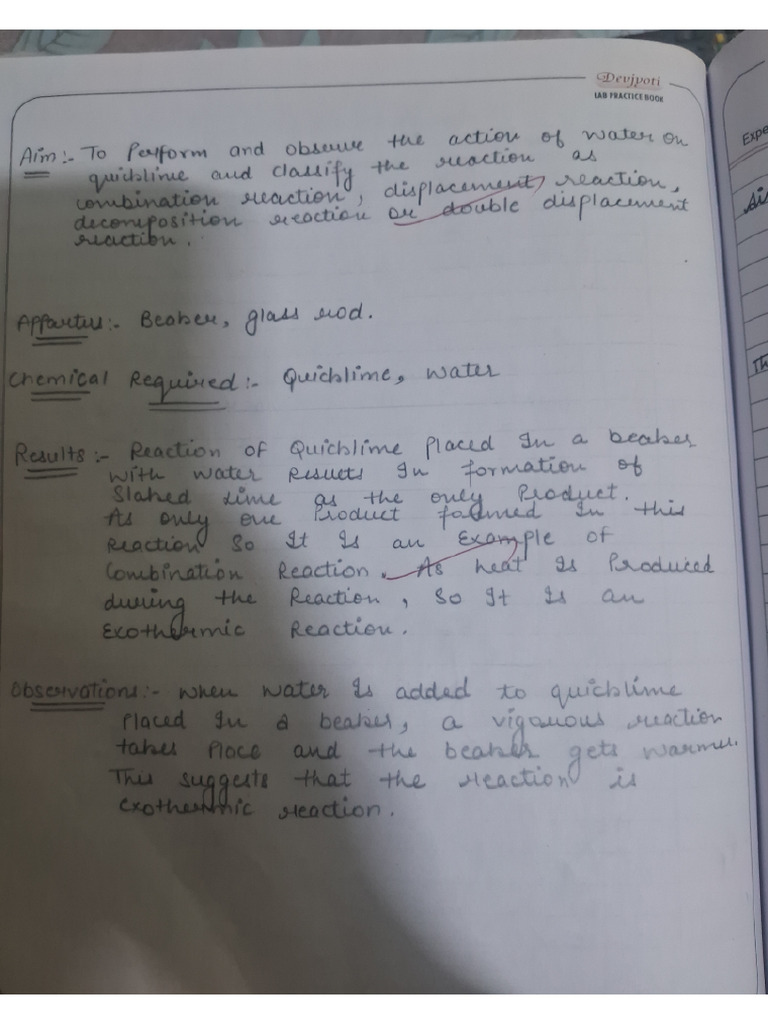 Devjyoti
LAB PRACTICE BOOK
Aim:- To Perform and observe the action of water on
quicklime and classify the reaction as
combination reaction, displacement reaction,
decomposition reaction or double displacement
reaction.
Appartus:- Beaker, glass rod.
Chemical Required:- Quicklime, water
Results:- Reaction of Quicklime Placed In a beaker
with water Results In formation of
Slaked Lime as the only Product.
As only one Product formed In this
Reaction So It Is an Example of
Combination Reaction. As heat Is Produced
during the Reaction, So It Is an
Exothermic Reaction.
Observations:- when water Is added to quicklime
Placed In a beaker, a vigourous reaction
takes Place and the beaker gets warmer.
This suggests that the reaction is
exothermic reaction.
Expe